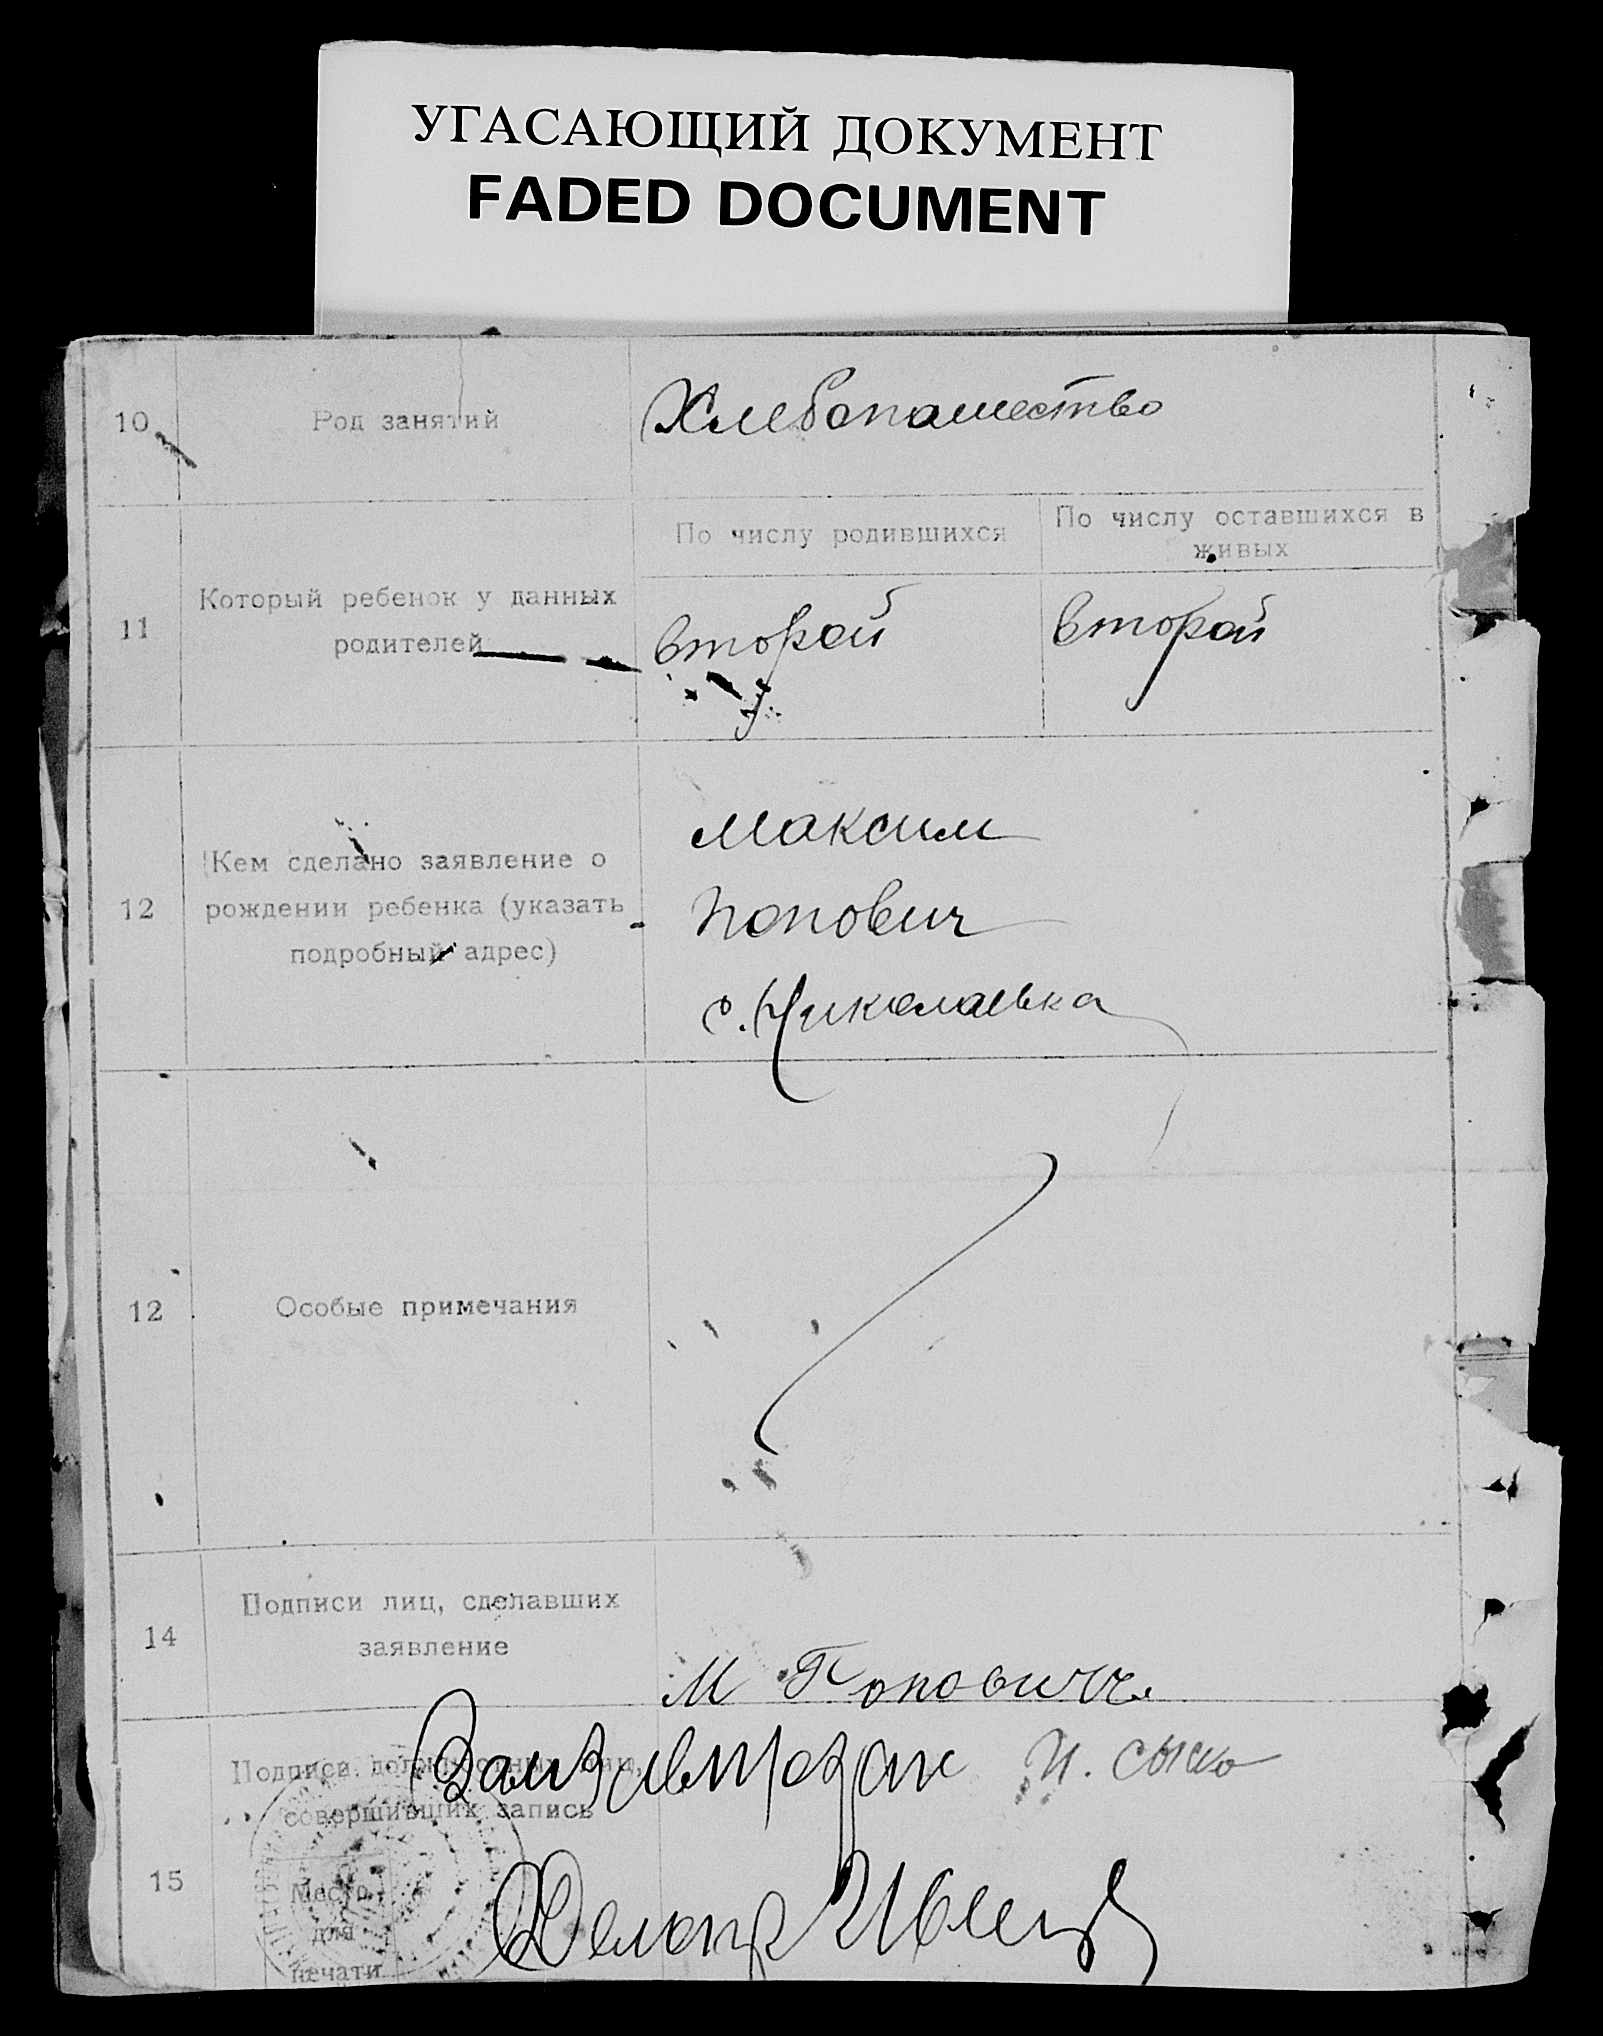 УГАСАЮЩИЙ ДОКУМЕНТ
FADED DOCUMENT
10
Род занятий
Хлебопашество
11
Который ребенок у данных
родителей
По числу родившихся
По числу оставшихся в
живых
второй
второй
12
Кем сделано заявление о
рождении ребенка (указать
подробный адрес)
Максим
Попович
с. Николаевка
12
Особые примечания
14
Подписи лиц, сделавших
заявление
М Попович
15
Подписи должностных лиц,
совершивших запись
Место
для
печати
Делопр